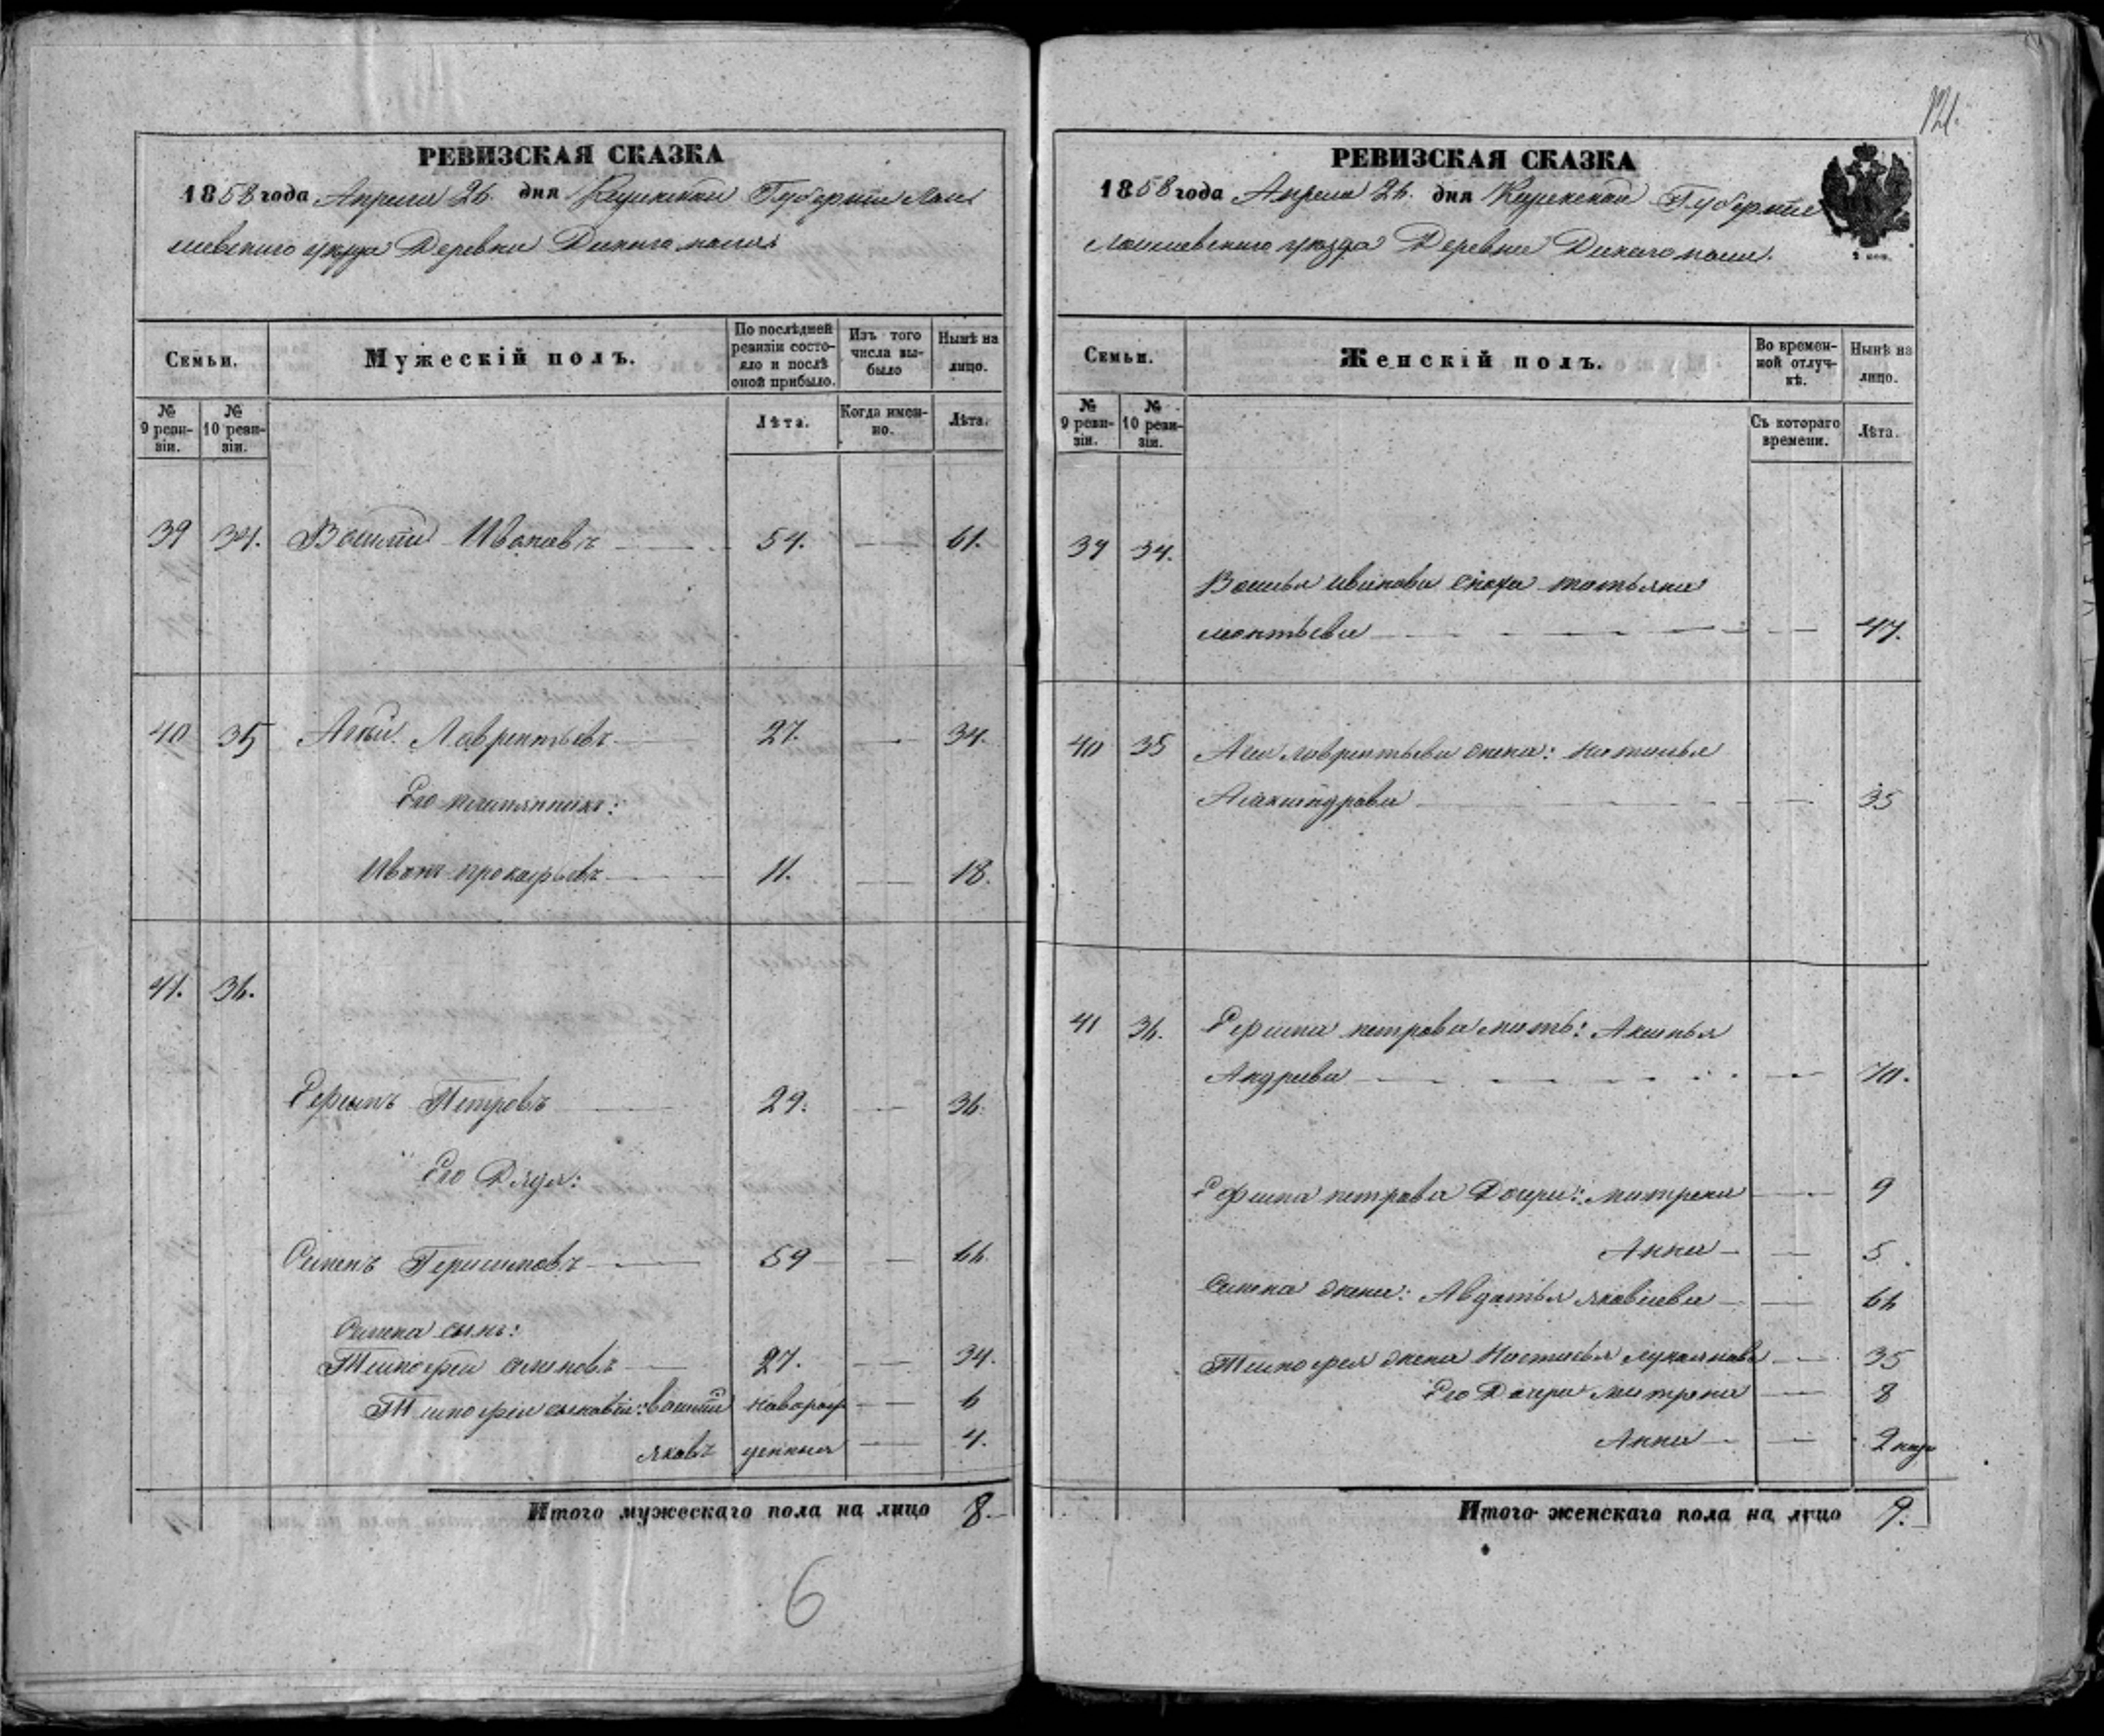 121.
РЕВИЗСКАЯ СКАЗКА
1858 года Апреля 26. дня Казанской Губернiи Лаи
шевскаго уѣзда Деревни Дикаго поля
Семьи.
Мужескій полъ.
По послѣдней ревизіи состояло и послѣ оной прибыло.
Изъ того числа выбыло
Нынѣ на лицо.
№ 9 ревизіи.
№ 10 ревизіи.
Лѣта.
Когда именно.
Лѣта.
39 34. Василiй Ивановъ 54. 61.
40 35 Лаврентьевъ 27. 34.
Его племянникъ:
Иванъ прокофьевъ 11. 18.
41. 36.
Ефимъ Петровъ 29. 36.
Его Дядя:
Семенъ Герасимовъ 59 66.
Семена сынъ:
Тимофей семеновъ 27. 34.
Тимофея сыновья: василiй новорож 6
яковъ денныя 4.
Итого мужескаго пола на лицо 8.
6
РЕВИЗСКАЯ СКАЗКА
1858 года Апреля 26. дня Казанской Губернiи
Лаишевскаго уѣзда Деревни Дикаго поля.
2 коп.
Семьи.
Женскій полъ.
Во временной отлучкѣ.
Нынѣ на лицо.
№ 9 ревизіи.
№ 10 ревизіи.
Съ котораго времени.
Лѣта.
39 34.
Василья иванова сноха татьяна
47.
40 35 лаврентьева жена: наталья
Александрова 35
41 36. Ефима петрова мать: Аксинья
Андреева 70.
Ефима петрова Дочери: матрена 9
Анна 5
Семена жена: Авдотья яковлева 66
Тимофея жена Настасья лукоянова 35
Его Дочери матрена 8
Анна 2 нед
Итого женскаго пола на лицо 9.